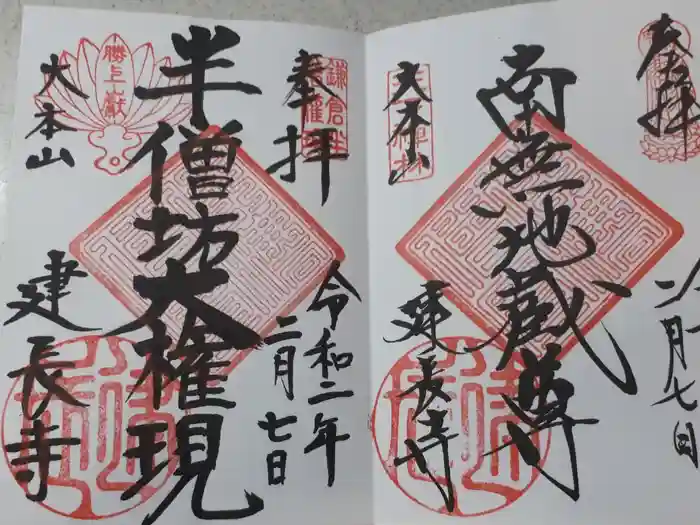 奉拝
南無地蔵尊
大本山
建長寺
二月七日
奉拝
令和二年
二月七日
半僧坊大権現
勝上嶽
大本山
建長寺